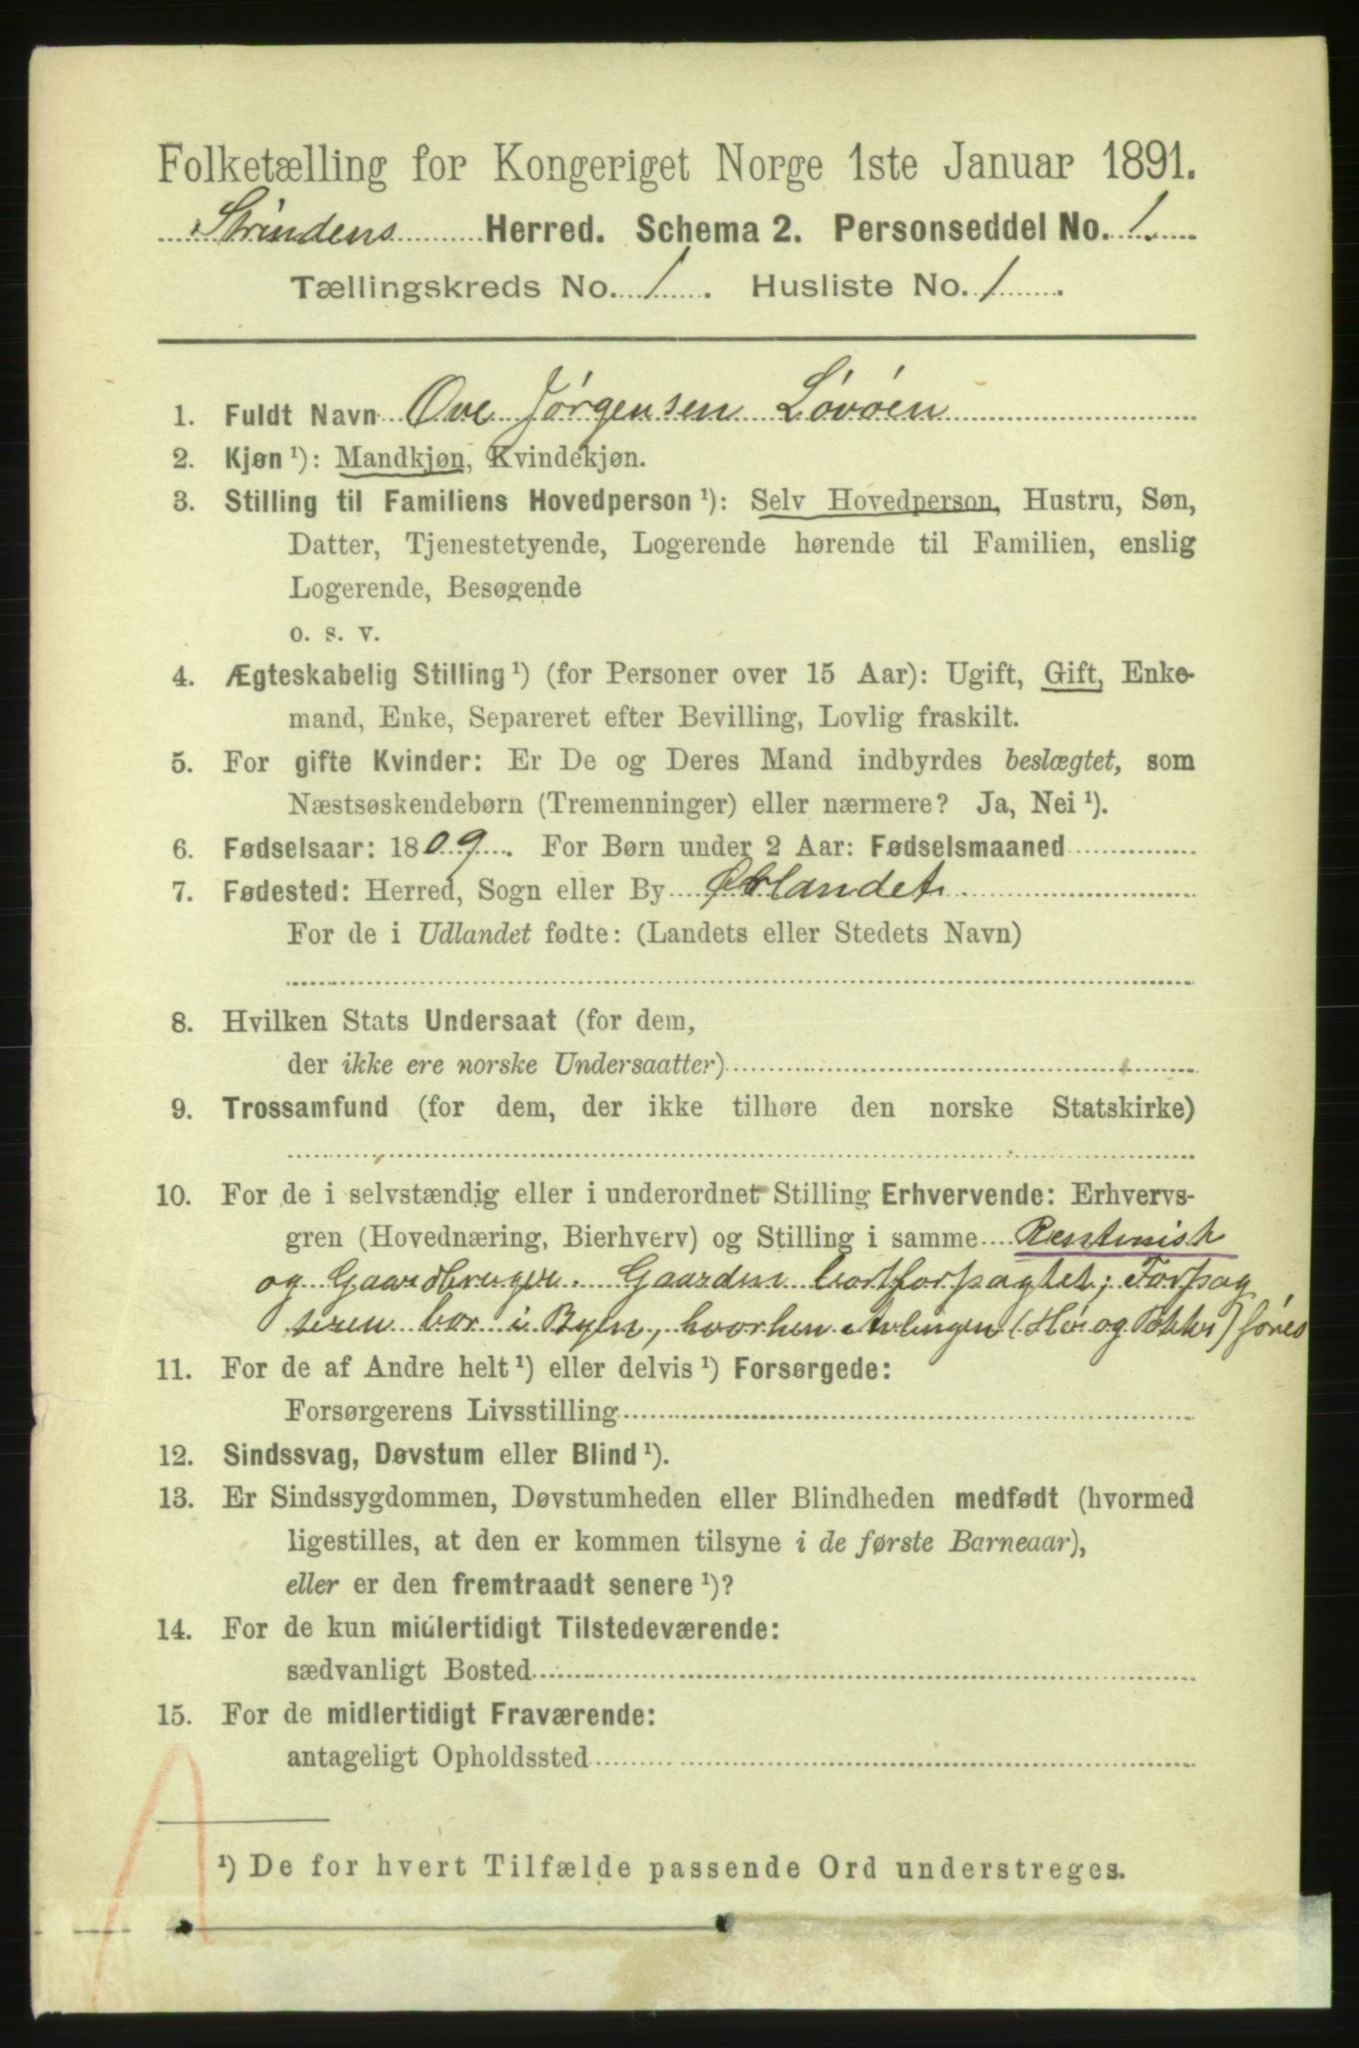 Folketælling for Kongeriget Norge 1ste Januar 1891.
Strindens Herred. Schema 2. Personseddel No. 1.
Tællingskreds No. 1. Husliste No. 1.
1. Fuldt Navn Ove Jørgensen Løvøen
2. Kjøn ¹): Mandkjøn, Kvindekjøn.
3. Stilling til Familiens Hovedperson ¹): Selv Hovedperson, Hustru, Søn,
Datter, Tjenestetyende, Logerende hørende til Familien, enslig
Logerende, Besøgende
o. s. v.
4. Ægteskabelig Stilling ¹) (for Personer over 15 Aar): Ugift, Gift, Enke-
mand, Enke, Separeret efter Bevilling, Lovlig fraskilt.
5. For gifte Kvinder: Er De og Deres Mand indbyrdes beslægtet, som
Næstsøskendebørn (Tremenninger) eller nærmere? Ja, Nei ¹).
6. Fødselsaar: 1809. For Børn under 2 Aar: Fødselsmaaned
7. Fødested: Herred, Sogn eller By Ørlandet
For de i Udlandet fødte: (Landets eller Stedets Navn)
8. Hvilken Stats Undersaat (for dem,
der ikke ere norske Undersaatter)
9. Trossamfund (for dem, der ikke tilhøre den norske Statskirke)
10. For de i selvstændig eller i underordnet Stilling Erhvervende: Erhvervs-
gren (Hovednæring, Bierhverv) og Stilling i samme Rentenist
og Gaardbruger. Gaarden bortforpagtet; Forpag
teren bor i Byen, hvorhen Avlingen (Hø og Poteter) føres
11. For de af Andre helt ¹) eller delvis ¹) Forsørgede:
Forsørgerens Livsstilling
12. Sindssvag, Døvstum eller Blind ¹).
13. Er Sindssygdommen, Døvstumheden eller Blindheden medfødt (hvormed
ligestilles, at den er kommen tilsyne i de første Barneaar),
eller er den fremtraadt senere ¹)?
14. For de kun midlertidigt Tilstedeværende:
sædvanligt Bosted
15. For de midlertidigt Fraværende:
antageligt Opholdssted
¹) De for hvert Tilfælde passende Ord understreges.